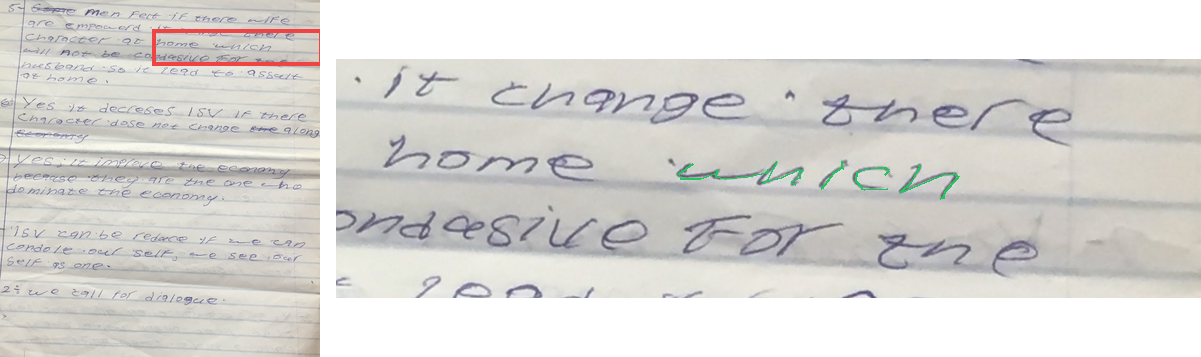 5- Some men felt if there wife
are empowerd it change there
character at home which
will not be condasive for the
husband so it lead to assalt
at home.
6- Yes it decreses ISV if there
character dose not change the along
economy
7- Yes, it improve the economy
because they are the one who
dominate the economy.
- ISV can be reduce if we can
condole our self, we see our
self as one.
2: we call for dialogue.
. it change there
home which
ondasive for the